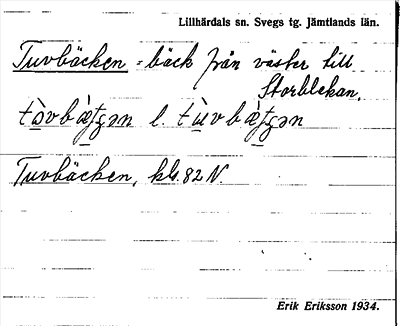 Lillhärdals sn. Svegs tg. Jämtlands län.
Tuvbäcken = bäck från väster till
Storblekan.
l.
Tuvbäcken, kbl. 82 N
Erik Eriksson 1934.